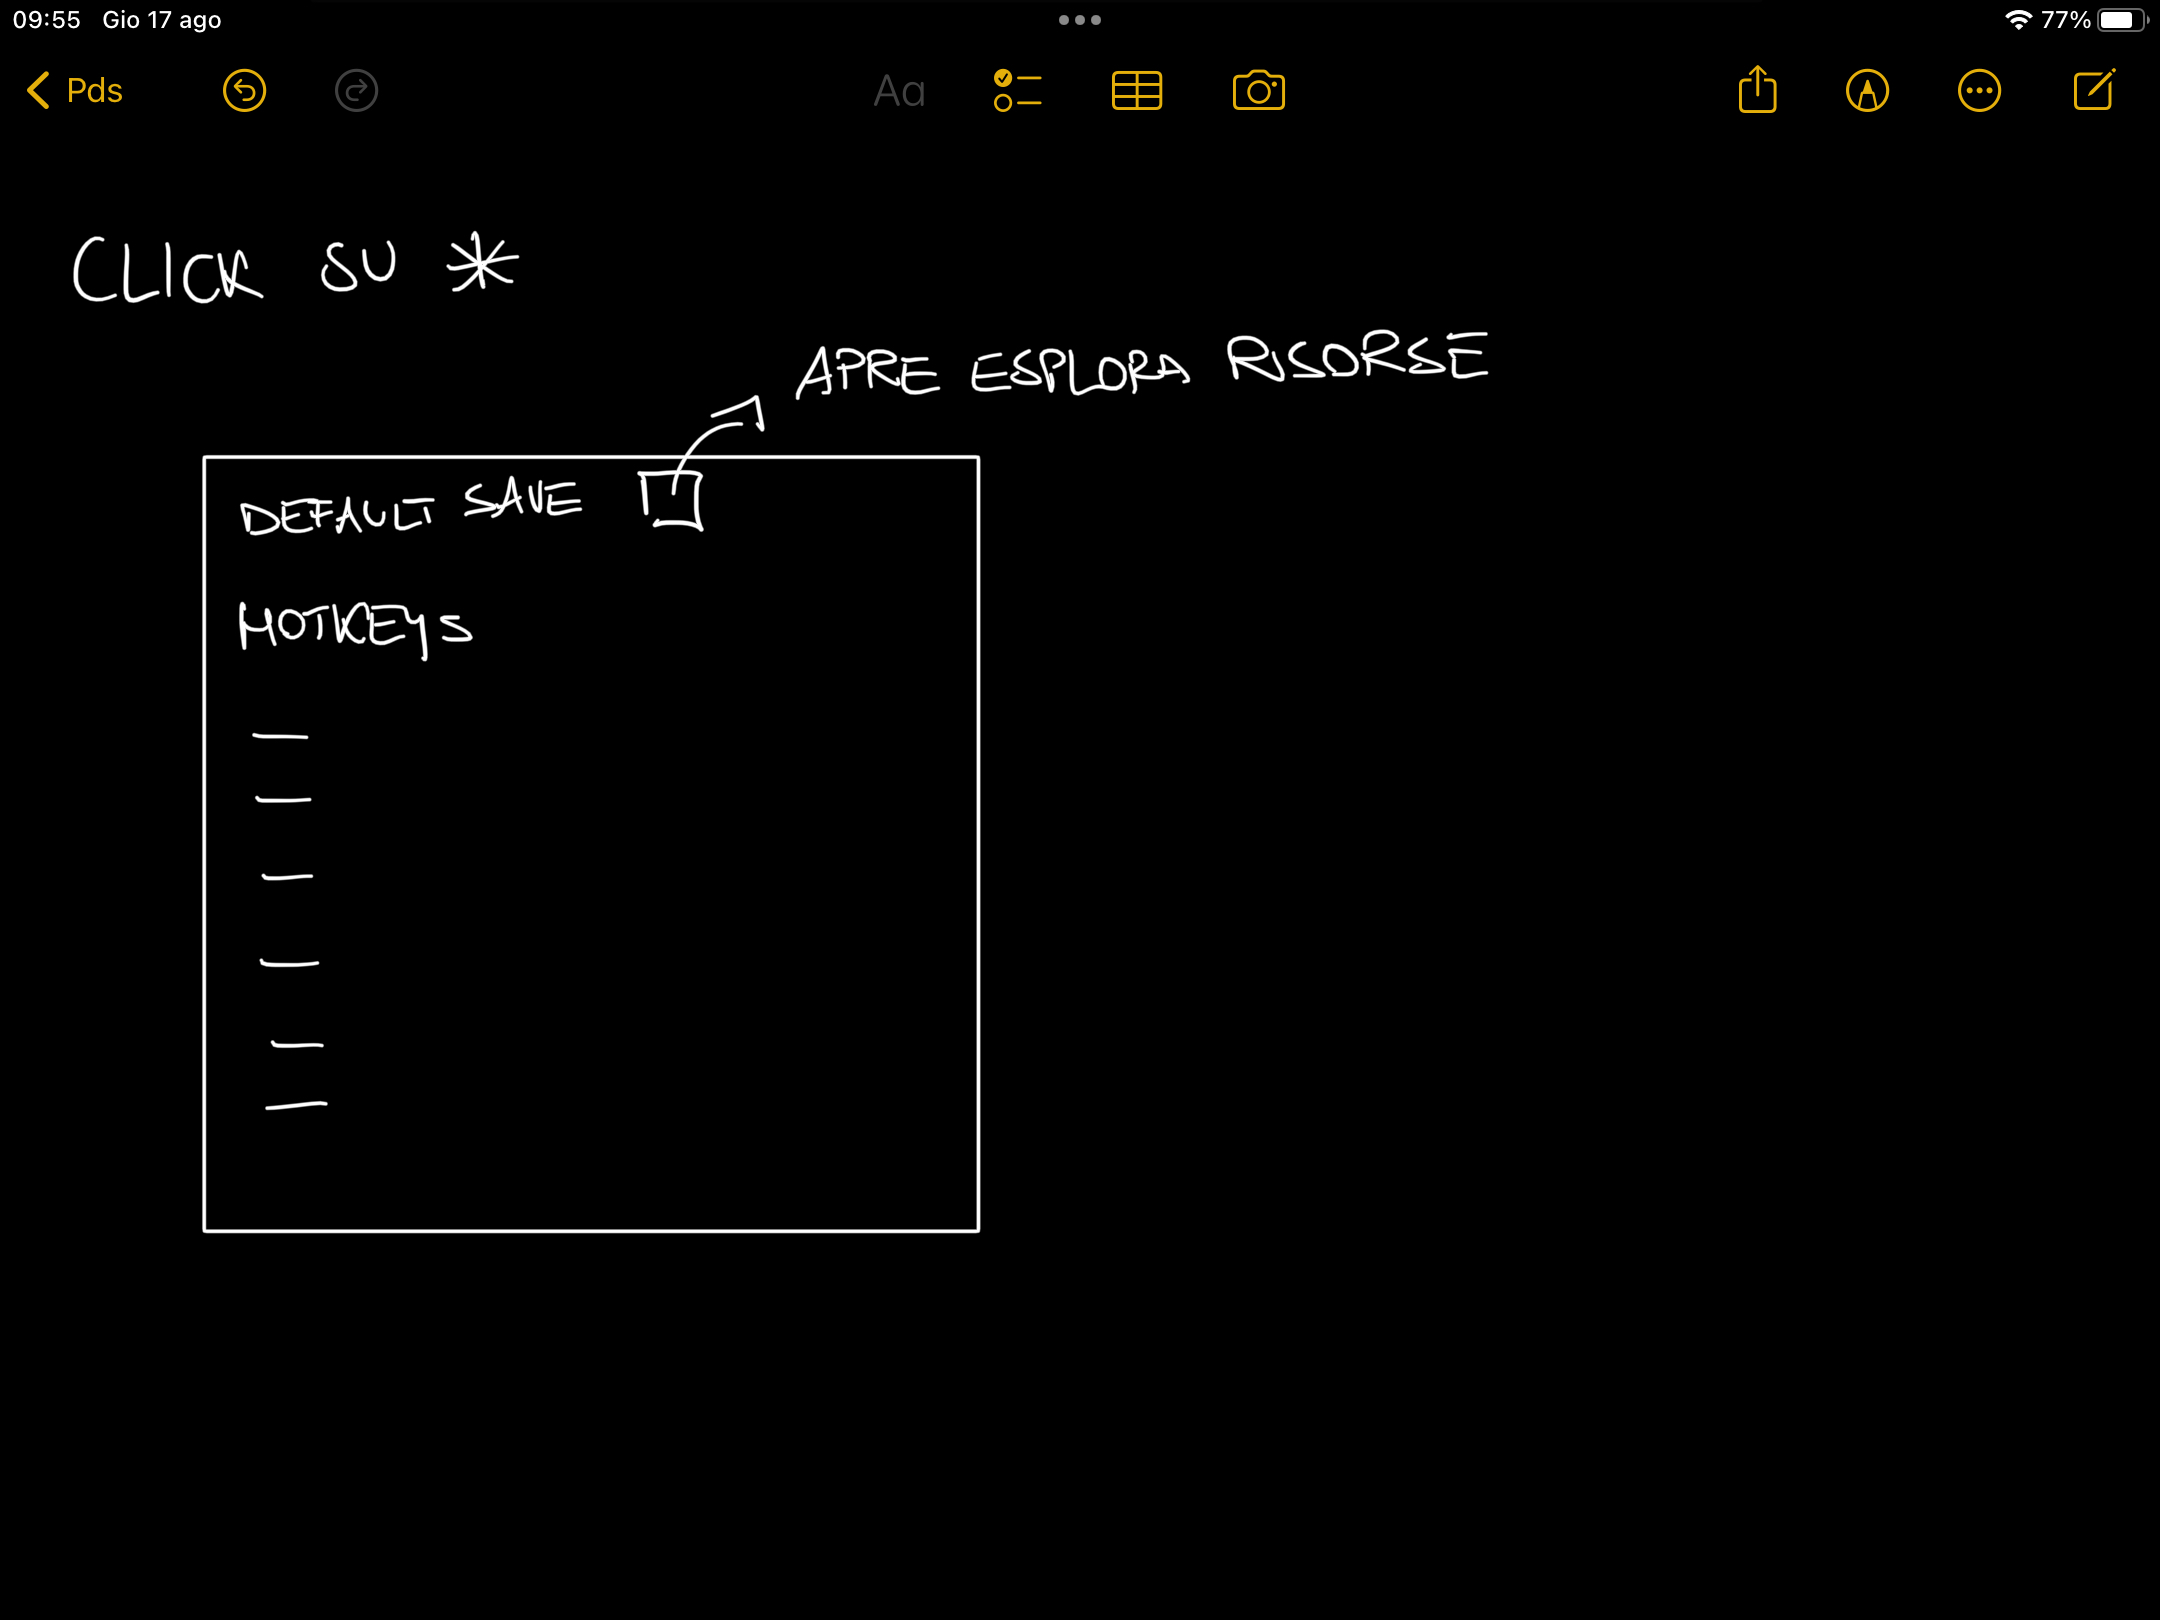 09:55 Gio 17 ago 77%
Pds Aa
CLICK SU *
APRE ESPLORA RISORSE
DEFAULT SAVE
HOTKEYS